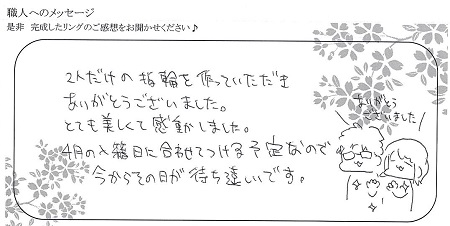 職人へのメッセージ
是非 完成したリングのご感想をお聞かせください♪
2人だけの指輪を作っていただき
ありがとうございました。
とても美しくて感動しました。
4月の入籍日に合わせてつける予定なので
今からその日が待ち遠しいです。
ありがとう
ございました